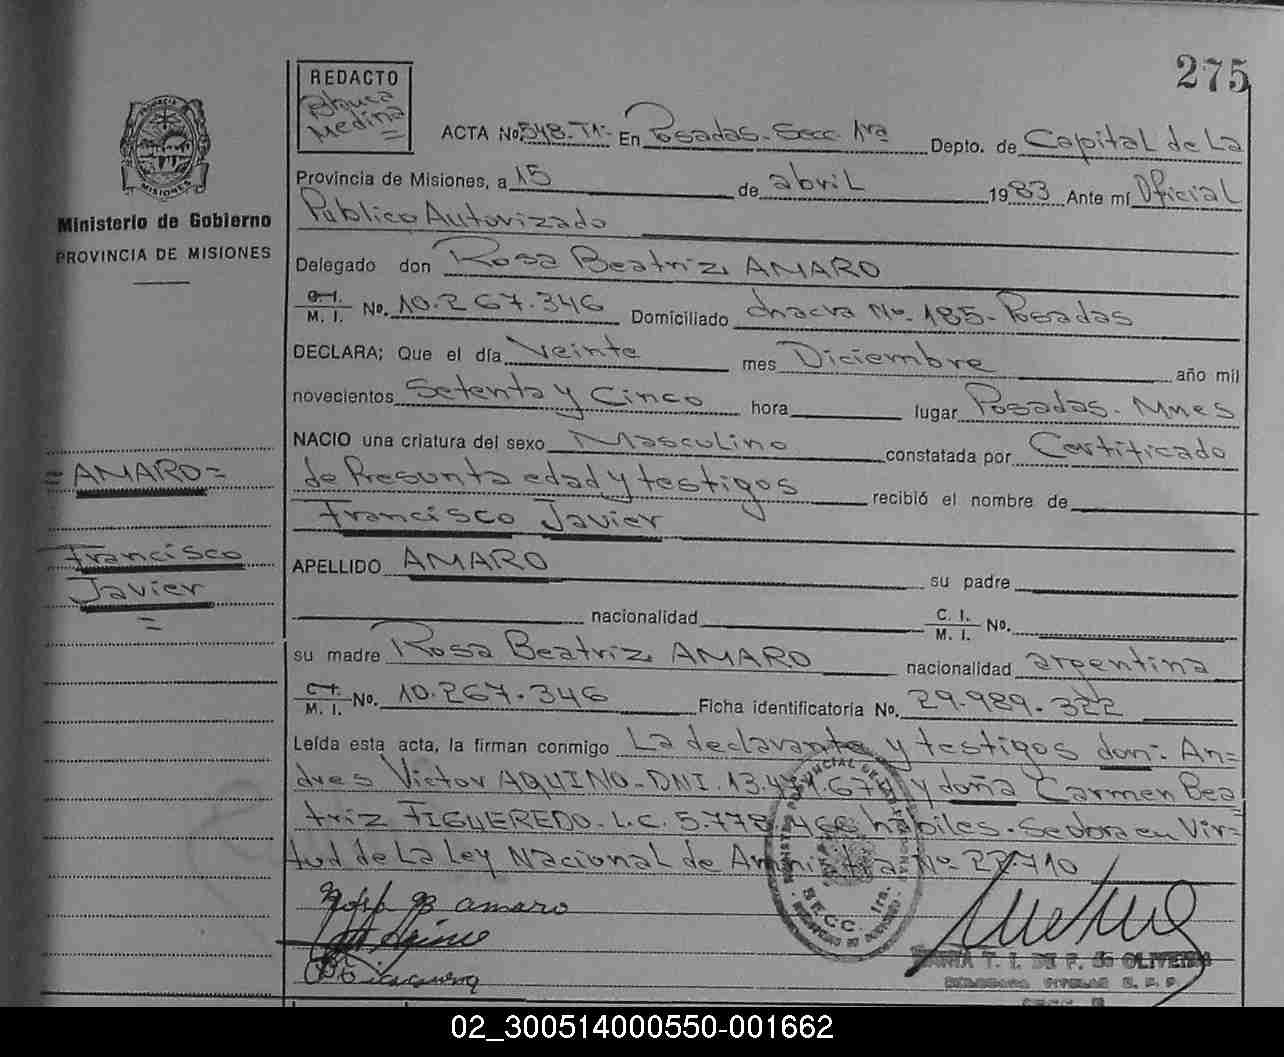 275
REDACTO
Blanca
Medina
ACTA No. 548-T1- En Posadas-Secc 1ra Depto. de Capital de La
Provincia de Misiones, a 15 de abril 1983 Ante mí Oficial
Público Autorizado
Ministerio de Gobierno
PROVINCIA DE MISIONES
Delegado don Rosa Beatriz AMARO
C. I.
M. I. No. 10.267.346 Domiciliado chacra No. 185- Posadas
DECLARA; Que el día Veinte mes Diciembre año mil
novecientos Setenta y Cinco hora lugar Posadas. Mnes
NACIO una criatura del sexo Masculino constatada por Certificado
de Presunta edad y testigos recibió el nombre de
Francisco Javier
= AMARO =
Francisco
Javier
=
APELLIDO AMARO su padre
nacionalidad C. I.
M. I. No.
su madre Rosa Beatriz AMARO nacionalidad argentina
C. I.
M. I. No. 10.267.346 Ficha identificatoria No. 29.989.322
Leída esta acta, la firman conmigo La declarante y testigos don: An=
dres Victor AQUINO-DNI. y doña Carmen Bea
triz FIGUEREDO-L.C. 5.778.466 habiles. Se obra en Vir=
tud de La Ley Nacional de Amnistia No 22.710
Rosa B amaro
SECC. 1ra.
MARIA T. I. DE F. de OLIVEIRA
DELEGADA TITULAR R. P. P.
02_300514000550-001662